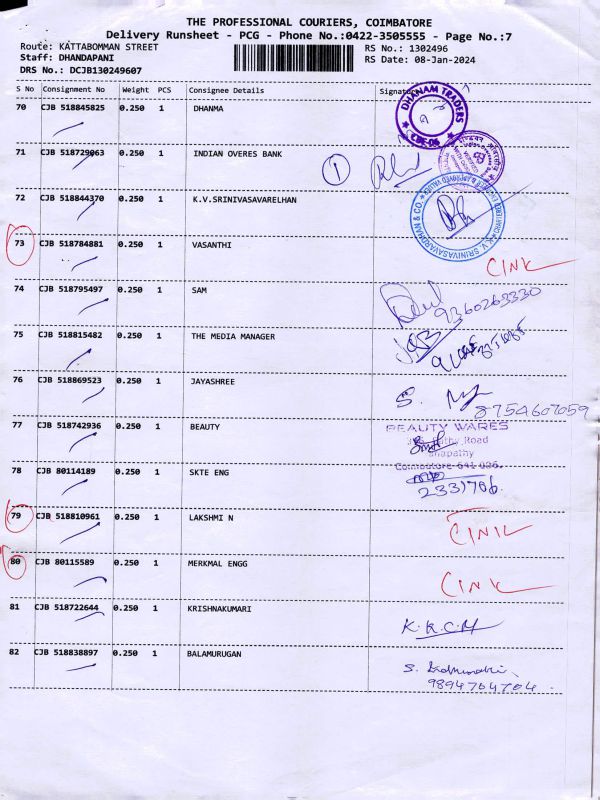 THE PROFESSIONAL COURIERS, COIMBATORE
Delivery Runsheet - PCG - Phone No.:0422-3505555 - Page No.:7
Route: KATTABOMMAN STREET
Staff: DHANDAPANI
DRS No.: DCJB130249607
RS No.: 1302496
RS Date: 08-Jan-2024
S No Consignment No Weight PCS Consignee Details Signature
70 CJB 518845825 0.250 1 DHANMA
DHANAM TRADERS
CBE-06
71 CJB 518729063 0.250 1 INDIAN OVERES BANK
1
72 CJB 518844370 0.250 1 K.V.SRINIVASAVARELHAN
K.V. SRINIVASAVARDHAN & CO.
73 CJB 518784881 0.250 1 VASANTHI
CINK
74 CJB 518795497 0.250 1 SAM
9360263330
75 CJB 518815482 0.250 1 THE MEDIA MANAGER
76 CJB 518869523 0.250 1 JAYASHREE
S.
8754607059
77 CJB 518742936 0.250 1 BEAUTY
BEAUTY WARES
Road
Coimbatore-641 006.
78 CJB 80114189 0.250 1 SKTE ENG
2331706.
79 CJB 518810961 0.250 1 LAKSHMI N
CINK
80 CJB 80115589 0.250 1 MERKMAL ENGG
CINK
81 CJB 518722644 0.250 1 KRISHNAKUMARI
K.R.C.M
82 CJB 518838897 0.250 1 BALAMURUGAN
S.
9894764704.